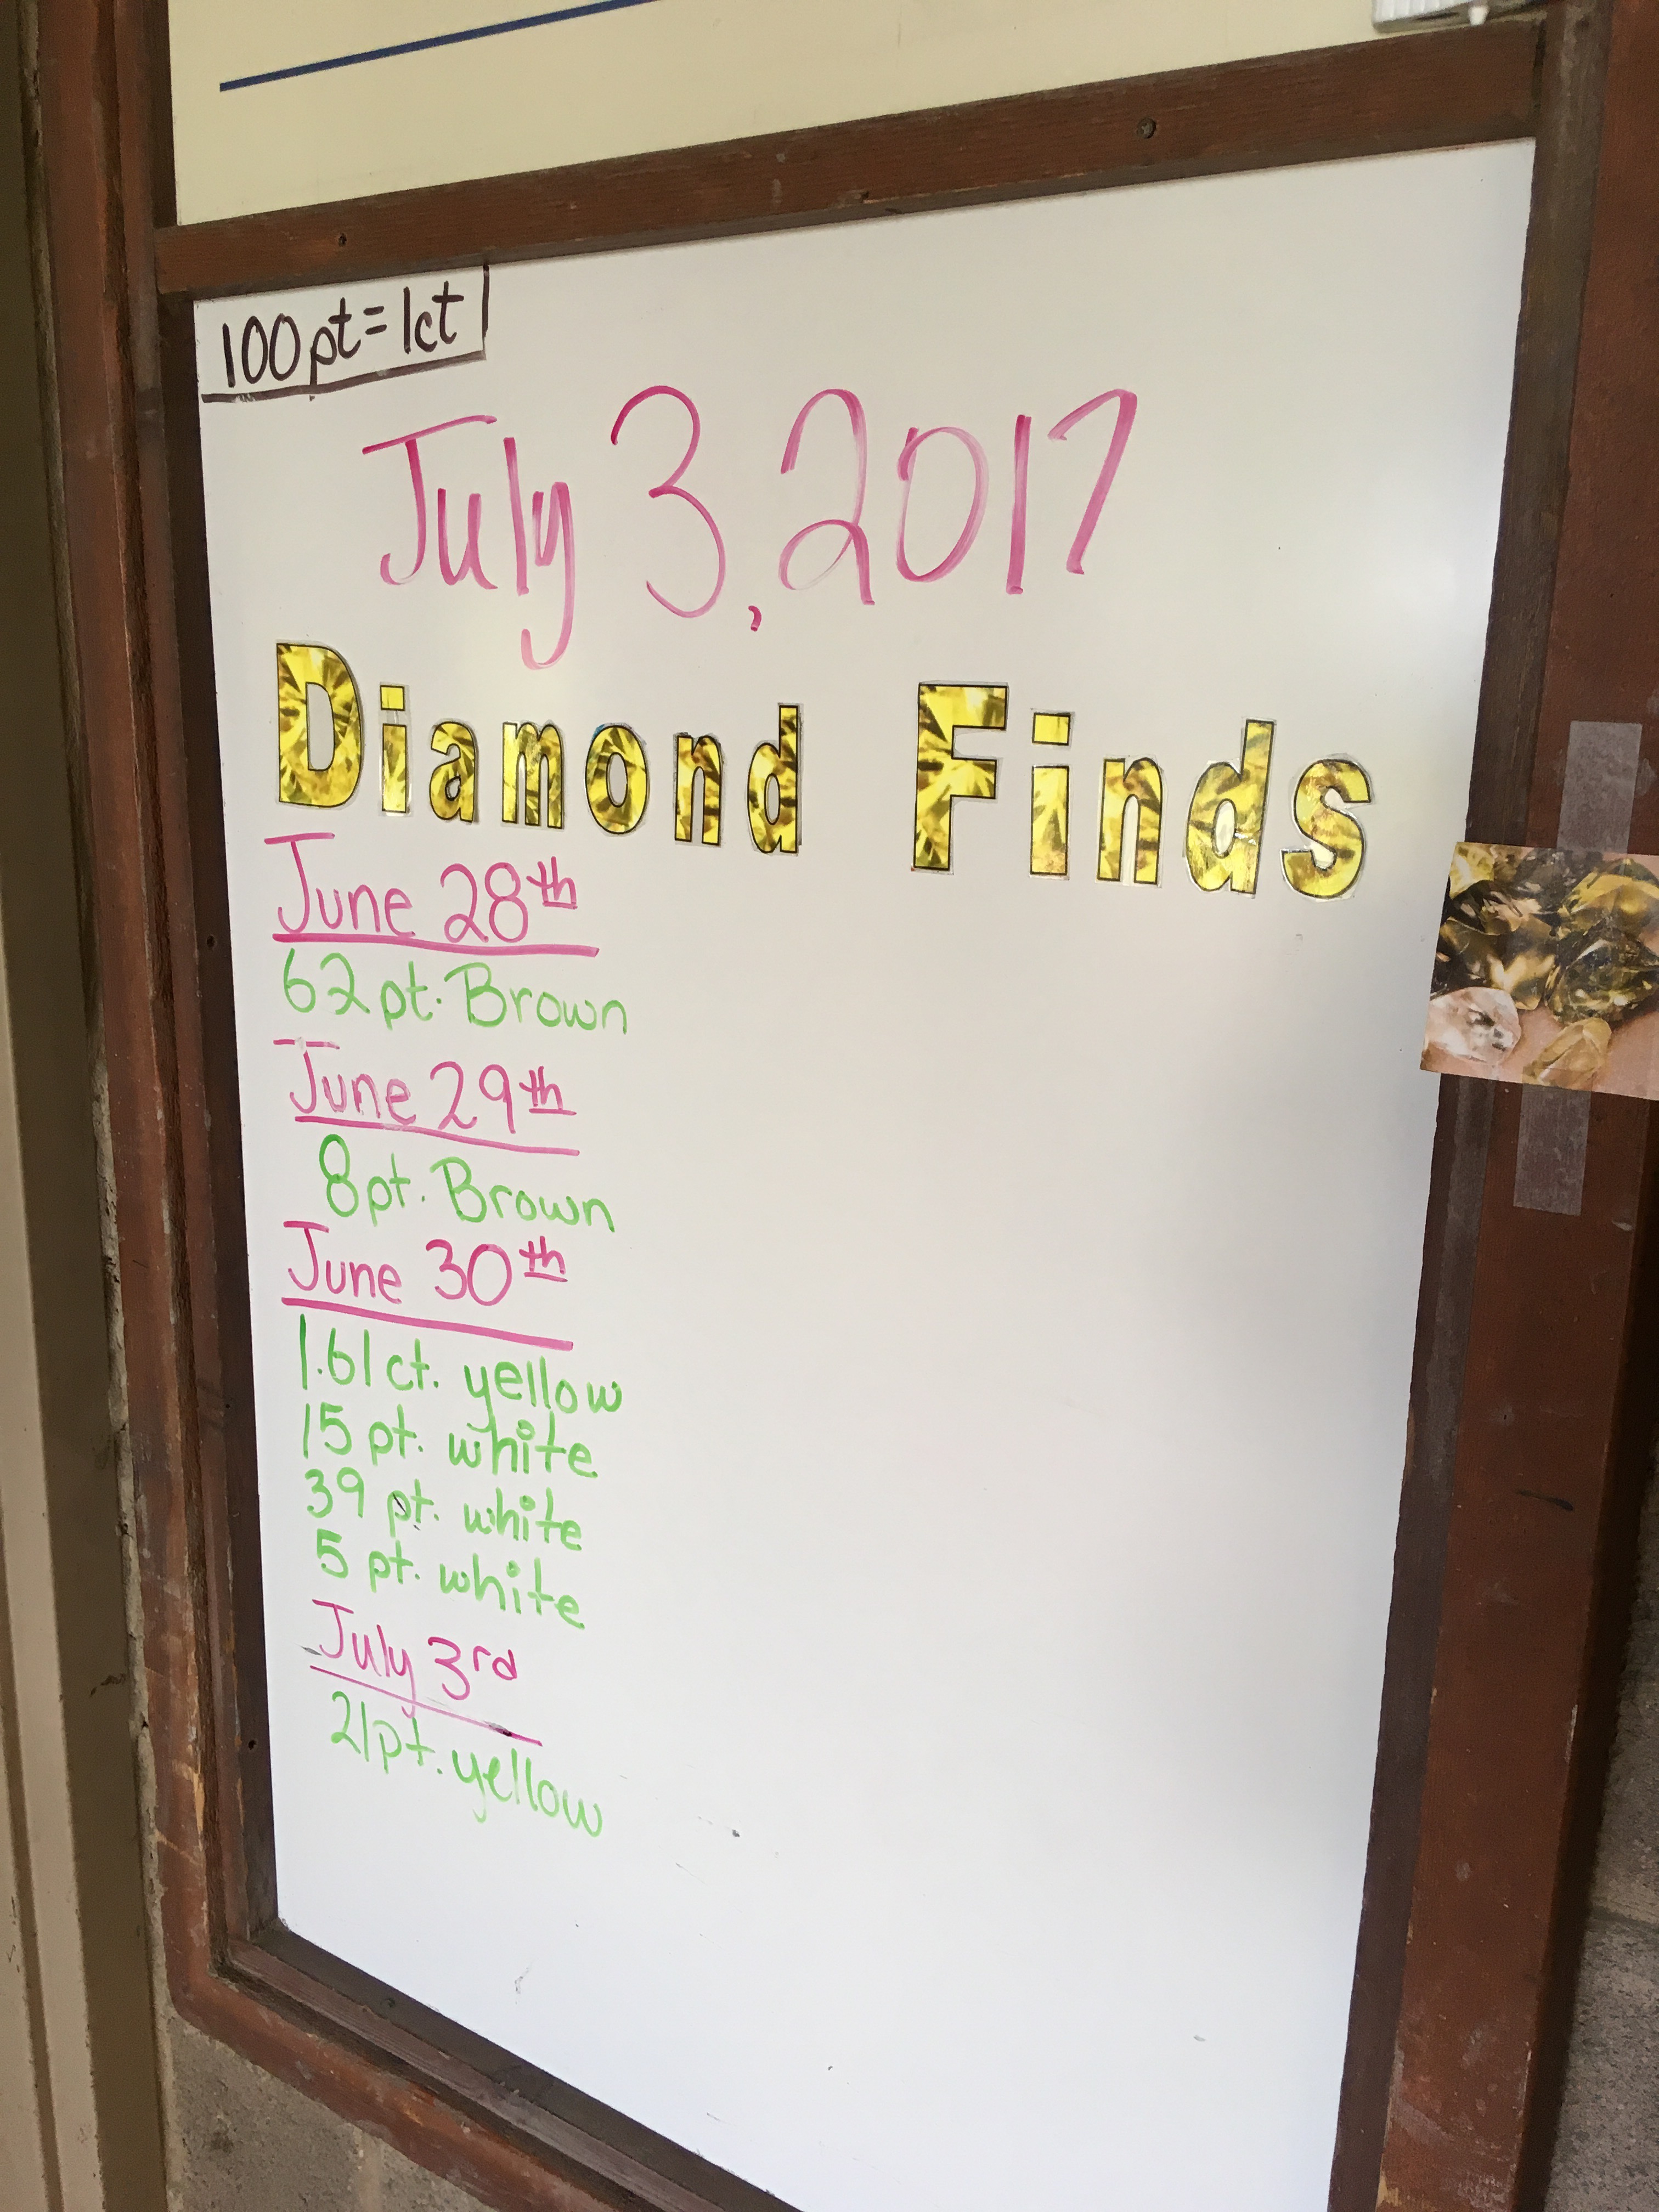 100pt=1ct
July 3, 2017
Diamond Finds
June 28th
62pt. Brown
June 29th
8pt. Brown
June 30th
1.61ct. yellow
15 pt. white
39 pt. white
5 pt. white
July 3rd
21pt. yellow